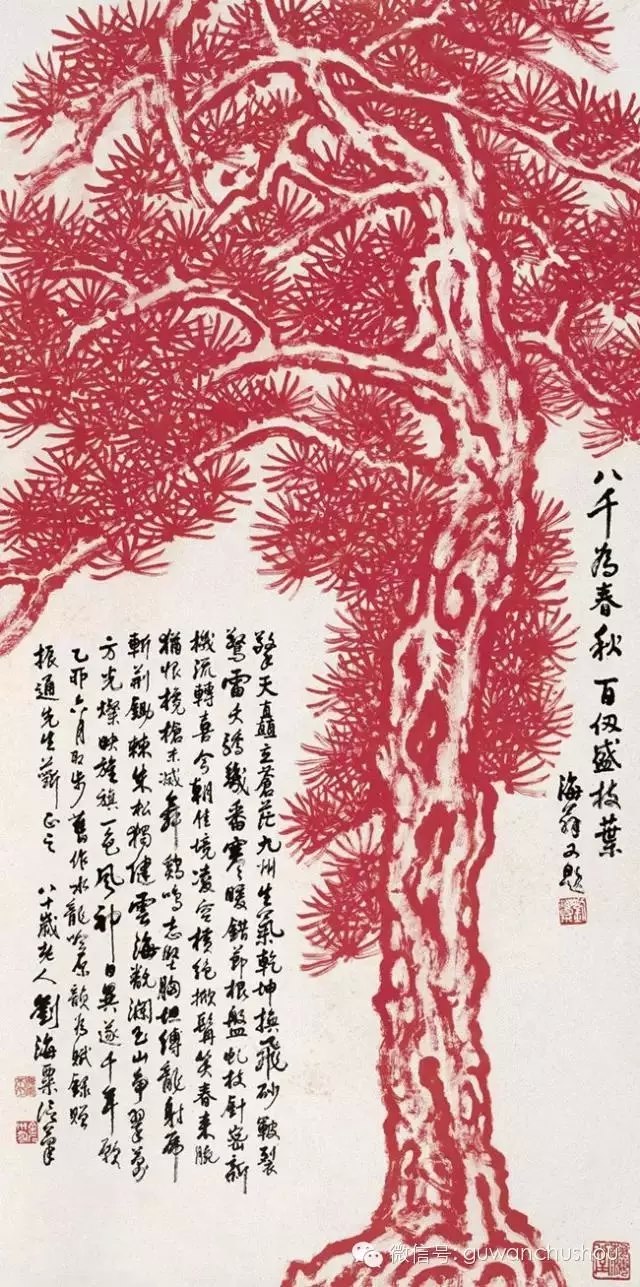 八千為春秋 百仞盛枝葉
海翁又題
擎天矗立蒼茫九州生氣乾坤換飛砂皺裂
驚雷夭矯幾番寒暖錯節根盤虬枝針密新
機流轉喜今朝佳境凌空橫絕掀髯笑春來腕
猶恨攙槍未滅舞鷄鳴志堅胸坦縛龍射虎
斬荊鋤棘朱松獨健雲海飜瀾玉山爭翠萬
方光燦映旌旗一色風神日異遂千年願
乙卯六月取步舊作水龍吟原韻為賦錄贈
振通先生蘄正之 八十歲老人劉海粟
微信号: guwanchushou